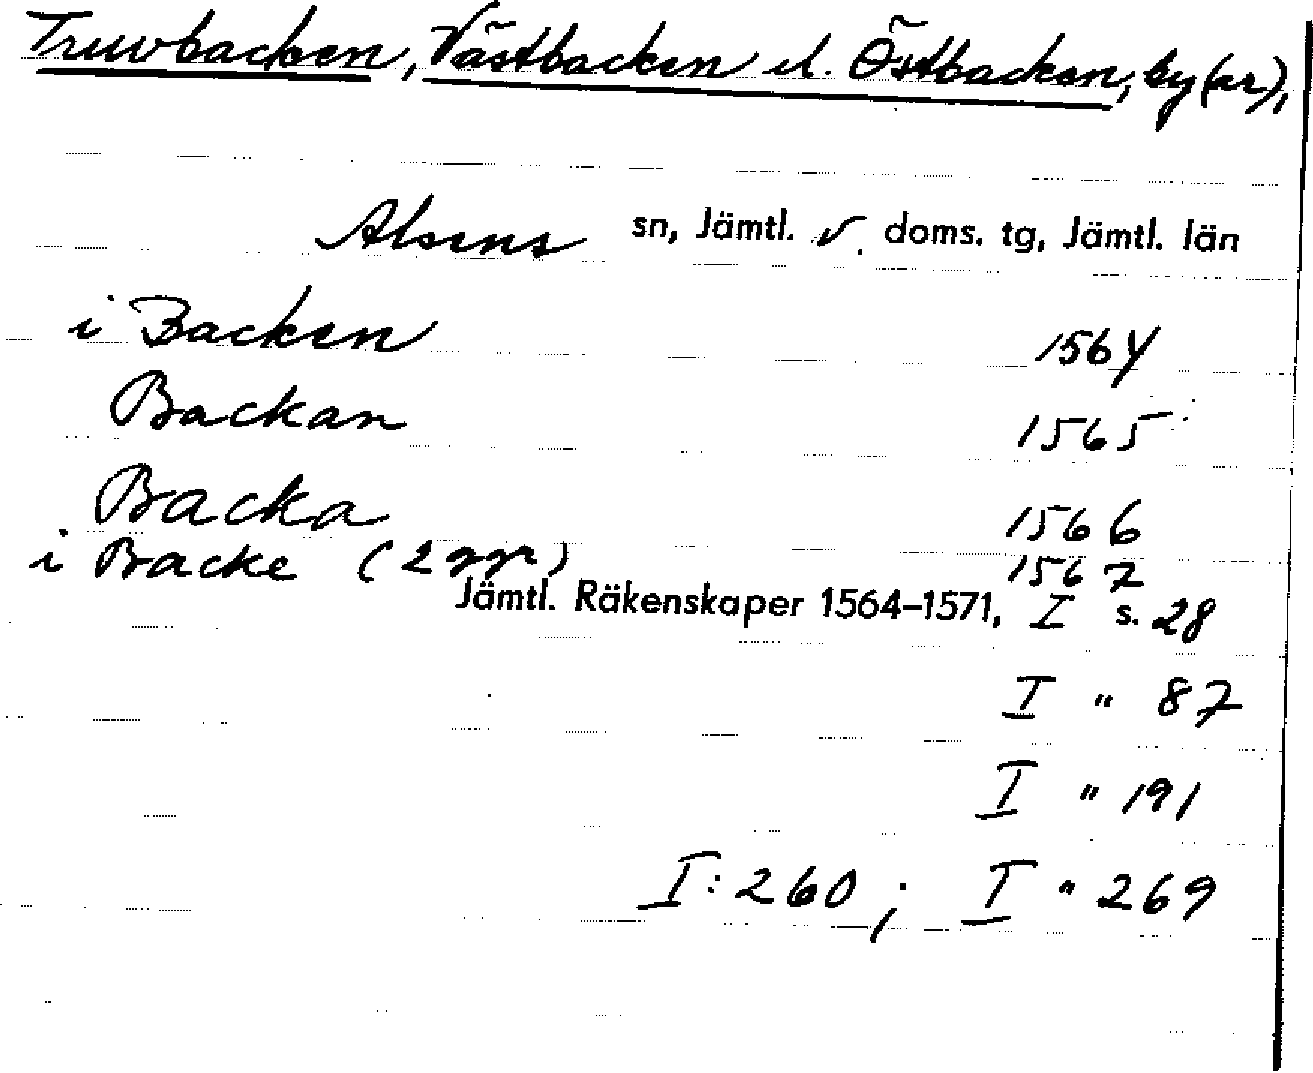 Truvbacken, Västbacken el. Östbacken, by(ar),
Alsens sn, Jämtl. v. doms. tg, Jämtl. län
i Backen 1564
Backan 1565
Backa 1566
i Backe (2 ggr) 1567
Jämtl. Räkenskaper 1564–1571, I s. 28
I " 87
I " 191
I: 260; I " 269